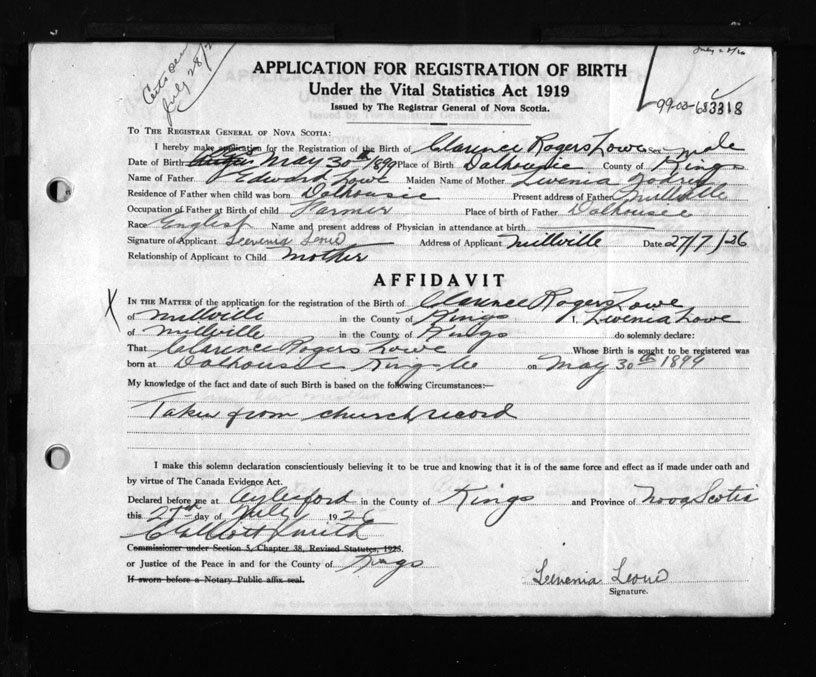 July 28/26
July 28/2
99-00-683318
APPLICATION FOR REGISTRATION OF BIRTH
Under the Vital Statistics Act 1919
Issued by The Registrar General of Nova Scotia.
TO THE REGISTRAR GENERAL OF NOVA SCOTIA:
I hereby make application for the Registration of the Birth of Clarence Rogers Lowe Sex male
Date of Birth May 30th 1899 Place of Birth Dalhousie County of Kings
Name of Father Edward Lowe Maiden Name of Mother Livenia
Residence of Father when child was born Dalhousie Present address of Father Millville
Occupation of Father at Birth of child Farmer Place of birth of Father Dalhousie
Race English Name and present address of Physician in attendance at birth
Signature of Applicant Address of Applicant Millville Date 27/7/26
Relationship of Applicant to Child Mother
AFFIDAVIT
X
IN THE MATTER of the application for the registration of the Birth of Clarence Rogers Lowe
of Millville in the County of Kings I, Livenia Lowe
of Millville in the County of Kings do solemnly declare:
That Clarence Rogers Lowe Whose Birth is sought to be registered was
born at Dalhousie Kings Co on May 30th 1899
My knowledge of the fact and date of such Birth is based on the following Circumstances:—
Taken from church record
I make this solemn declaration conscientiously believing it to be true and knowing that it is of the same force and effect as if made under oath and
by virtue of The Canada Evidence Act.
Declared before me at Aylesford in the County of Kings and Province of Nova Scotia
this 27th day of July 1926
Smith
Commissioner under Section 5, Chapter 38, Revised Statutes, 1923.
or Justice of the Peace in and for the County of Kings
If sworn before a Notary Public affix seal.
Signature.